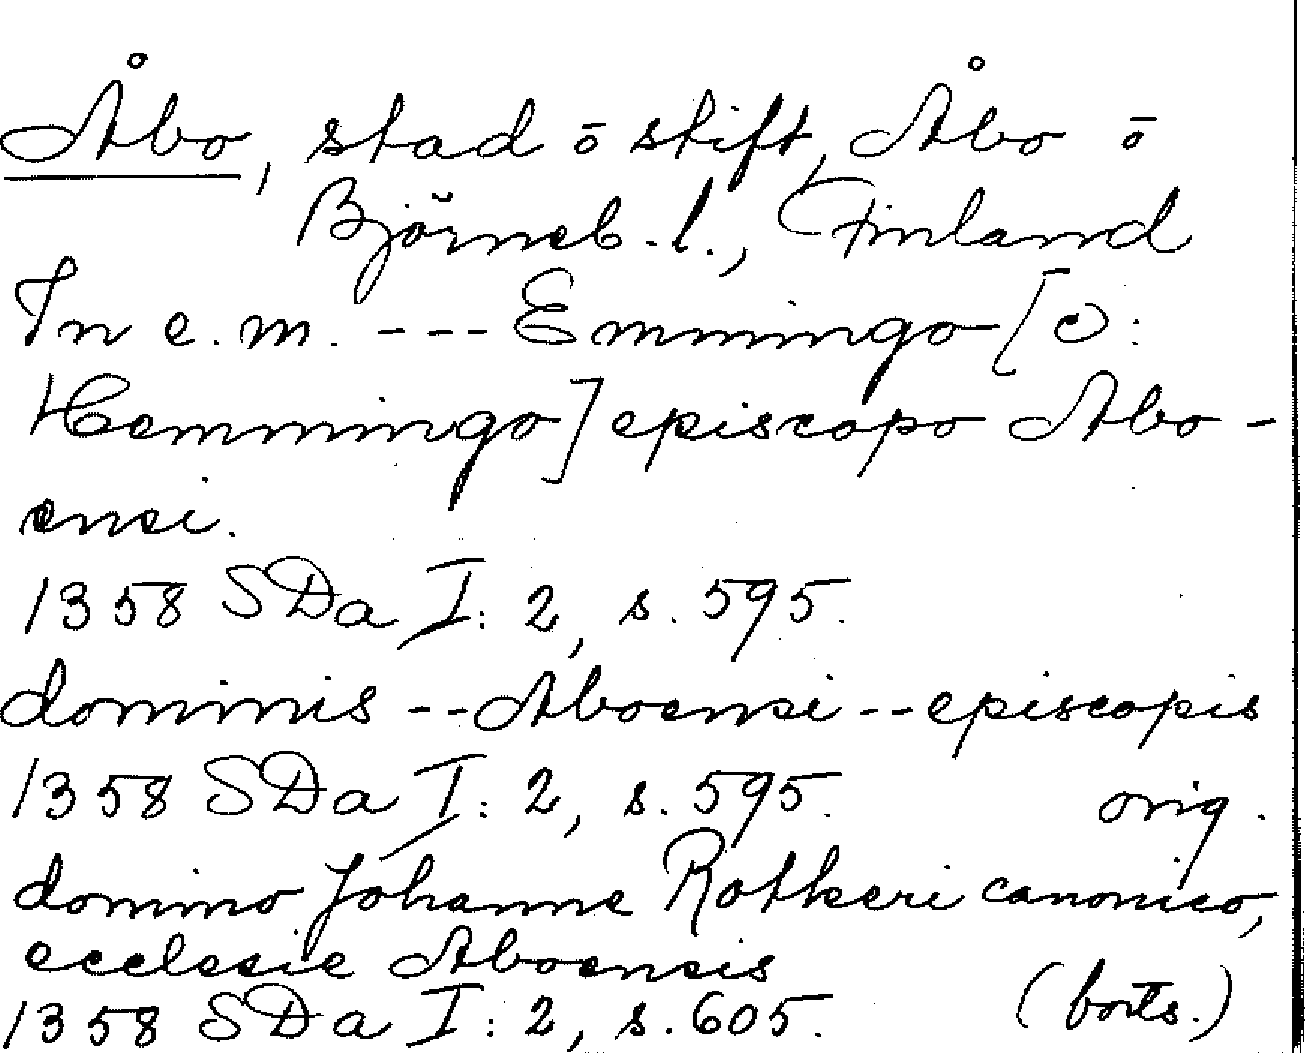 Åbo, stad ō stift, Åbo ō
Björneb. l., Finland
In c. m. --- Emmingo [ɔ:
Hemmingo] episcopo Abo-
ensi.
1358 SDa I: 2, s. 595.
dominis -- Aboensi -- episcopis
1358 SDa I: 2, s. 595. orig.
domino Johanne Rotkeri canonico,
ecclesie Aboensis
1358 SDa I: 2, s. 605. (forts.)